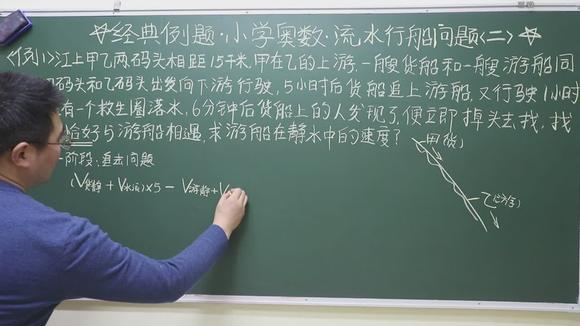 ☆经典例题·小学奥数·流水行船问题<二>☆
<例1>江上甲乙两码头相距15千米,甲在乙的上游,一艘货船和一艘游船同
码头和乙码头出发向下游行驶,5小时后货船追上游船,又行驶1小时
有一个救生圈落水,6分钟后货船上的人发现了,便立即掉头去找,找
恰好与游船相遇,求游船在静水中的速度?
阶段:追击问题
甲(货)
(V货静+V水流)×5-V游静+V
乙(游)